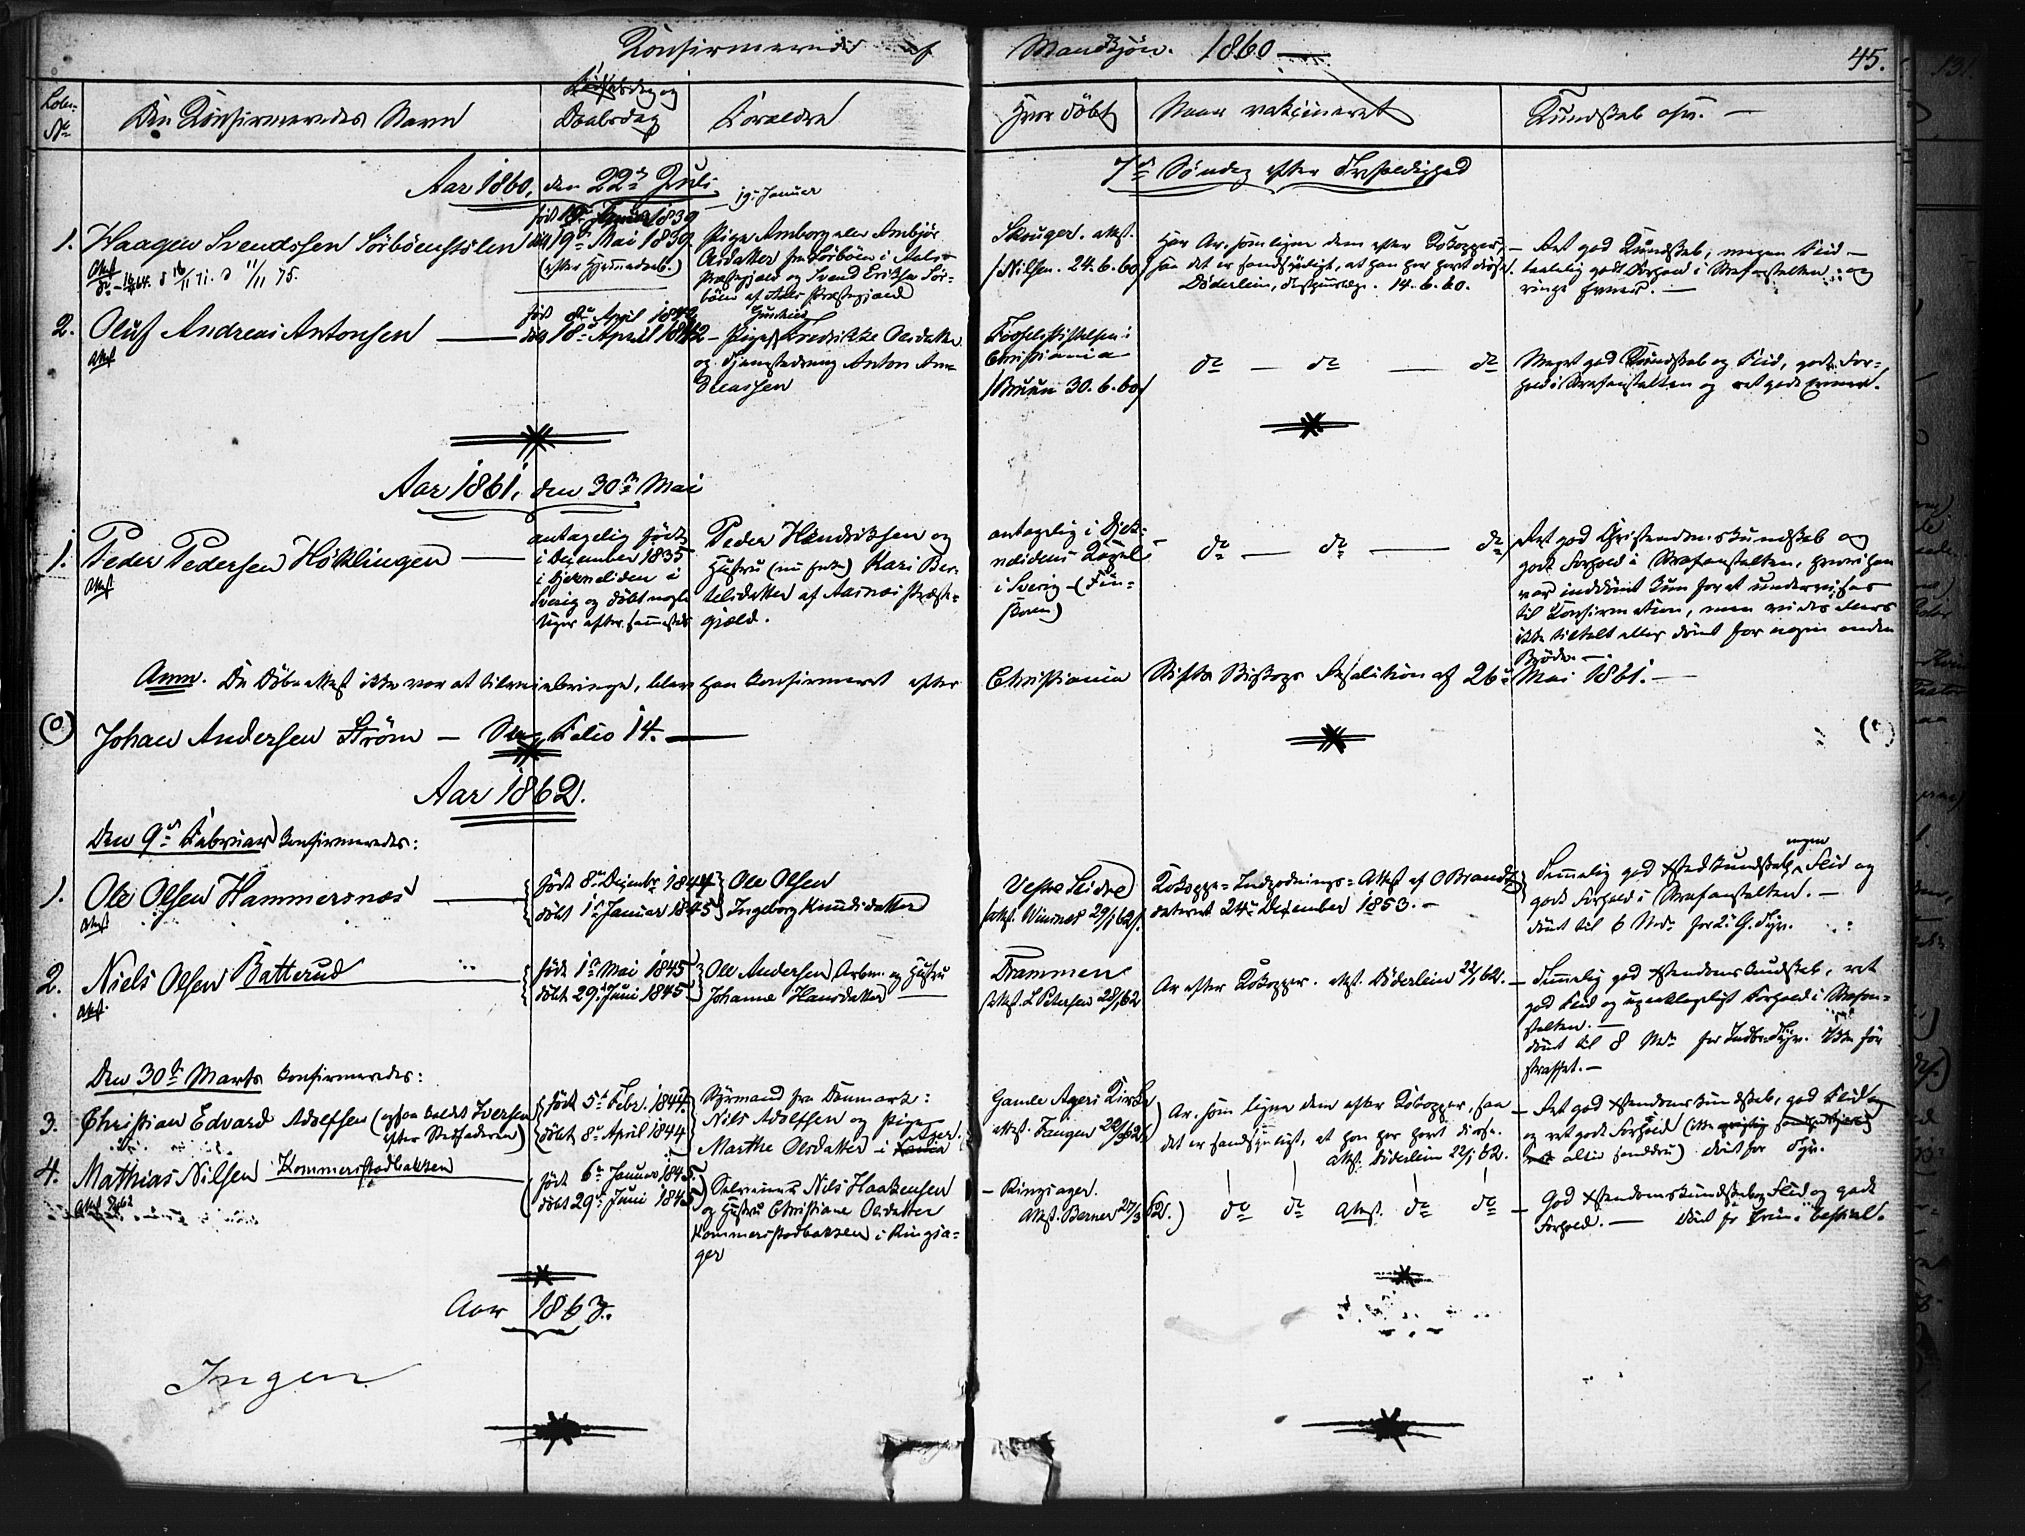 Konfirmerede af Mandkjøn. 1860 — 45.
Løbe-
No
Den Konfirmeredes Navn
Fødselsdag og
Daabsdag
Forældre
Hvor døbt
Naar vakcineret
Kundskab osv. —
Aar 1860, den 22de Juli
7de Søndag efter Trefoldighed
19. Januar
1. Haagen Svendssen Sörböenseien
født 19de Januar 1839
døbt 19de Mai 1839.
(efter Hjemmedaab.)
Pige Amborg eller Ambjör
Olsdatter fra Sörböen i Aals
Præstegjæld og Svend Eriksen Sör-
böen af Aals Præstegjæld
Skouger. Attst.
/Nilssen. 24.6.60/
Har Ar, som ligne dem efter Kokopper,
saa det er sandsynligt, at han har havt disse.
Döderlein, 14.6.60.
Ret god Kundskab, megen Flid —
taalelig godt Forhold i Strafanstalten og
ringe Evner. —
Attest
2. Oluf Andreas Antonsen
født 8de April 1842
døbt 18de April 1842
Pige Fredrikke Olsdatter
og Tjenestedreng Anton An-
dreassen
Fødselsstiftelsen i
Christiania
/Bruun 30.6.60/
do — do — do
Meget god Kundskab og Flid, godt For-
hold i Strafanstalten og ret gode Evner.
Attest
Aar 1861, den 30te Mai
1. Peder Pedersen Höklingen
antagelig født
i December 1835
i
Sverig og døbt nogle
Uger efter sammesteds
Peder Hendriksen og
Hustru (nu ) Kari Ber-
telsdatter af Aasnæs Præste-
gjæld.
antagelig i
Kapel
i Sverig (Fin-
skoven)
do — do — do
Ret god Christendomskundskab og
godt Forhold i Strafanstalten, hvori han
var inddömt kun for at undervises
til Konfirmation, men vides ellers
ikke tiltalt eller dömt for nogen anden
Bröde. —
Attest
Anm. Da Döbeattest ikke var at tilveiebringe, blev han konfirmeret efter Christiania Stifts Biskops Resolution af 26de Mai 1861. —
(0) Johan Andersen Ström — Se Folio 14. —
Aar 1862.
Den 9de Februar konfirmeredes:
1. Ole Olsen Hammersnæs
født 8de Decembr 1844
døbt 1ste Januar 1845
Ole Olsen
Ingeborg Knudsdatter
Vestre Slidre
Attst. Winsnes 29/1 62.
Kokoppe-Indpodnings-Attest af O Brandt
dateret 24de December 1853. —
Temmelig god Xstd.kundskab, megen Flid og
godt Forhold i Strafanstalten. —
dömt til 6 Mdr for 2. G. Tyv.
Attest
2. Niels Olsen Batterud
født 1ste Mai 1845
døbt 29de Juni 1845
Ole Andersen, Arbm. og Hustru
Johanne Hansdatter
Drammen
Attst. L Petersen 28/1 62
Ar efter Kokopper. Attst. Döderlein 22/1 62.
Temmelig god Xstendomskundskab, ret
god Flid og upaaklageligt Forhold i Strafan-
stalten. —
dömt til 8 Mdr for Indbr.Tyv. Ikke för
straffet. —
Attest
Den 30te Marts konfirmeredes:
3. Christian Edvard Adolfsen (ogsaa kaldet Iversen
efter Stedfaderen)
født 5te Febr. 1844.
døbt 8de April 1844
Styrmand fra Danmark:
Nils Adolfsen og Pige
Marthe Olsdatter i Aker.
Gamle Agers Kirke
Attst. Fangen 22/3 62
Ar, som ligne dem efter Kokopper, saa
det er sandsynligt, at han har havt disse.
Attst. Döderlein 22/1 62.
Ret god Xstendomskundskab, god Flid og
og ret godt Forhold (ikke
altid sanddru) dömt for Tyv.
4. Mathias Nilsen Kommerstadbakken
født 6te Januar 1845.
døbt 29de Juni 1845
Selveier Nils Haakensen
og Hustru Christiane Olsdatter
Kommerstadbakken i Ringsa-
ger
Ringsager.
Attst. Berner 27/3 62.
do do Attst. do do
God Xstendomskundskab, Flid og godt
Forhold. — dömt for Crim: bestial.
Attest
Aar 1863.
Ingen